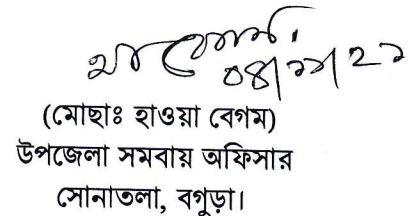 ০৪/১১/২১
(মোছাঃ হাওয়া বেগম)
উপজেলা সমবায় অফিসার
সোনাতলা, বগুড়া।